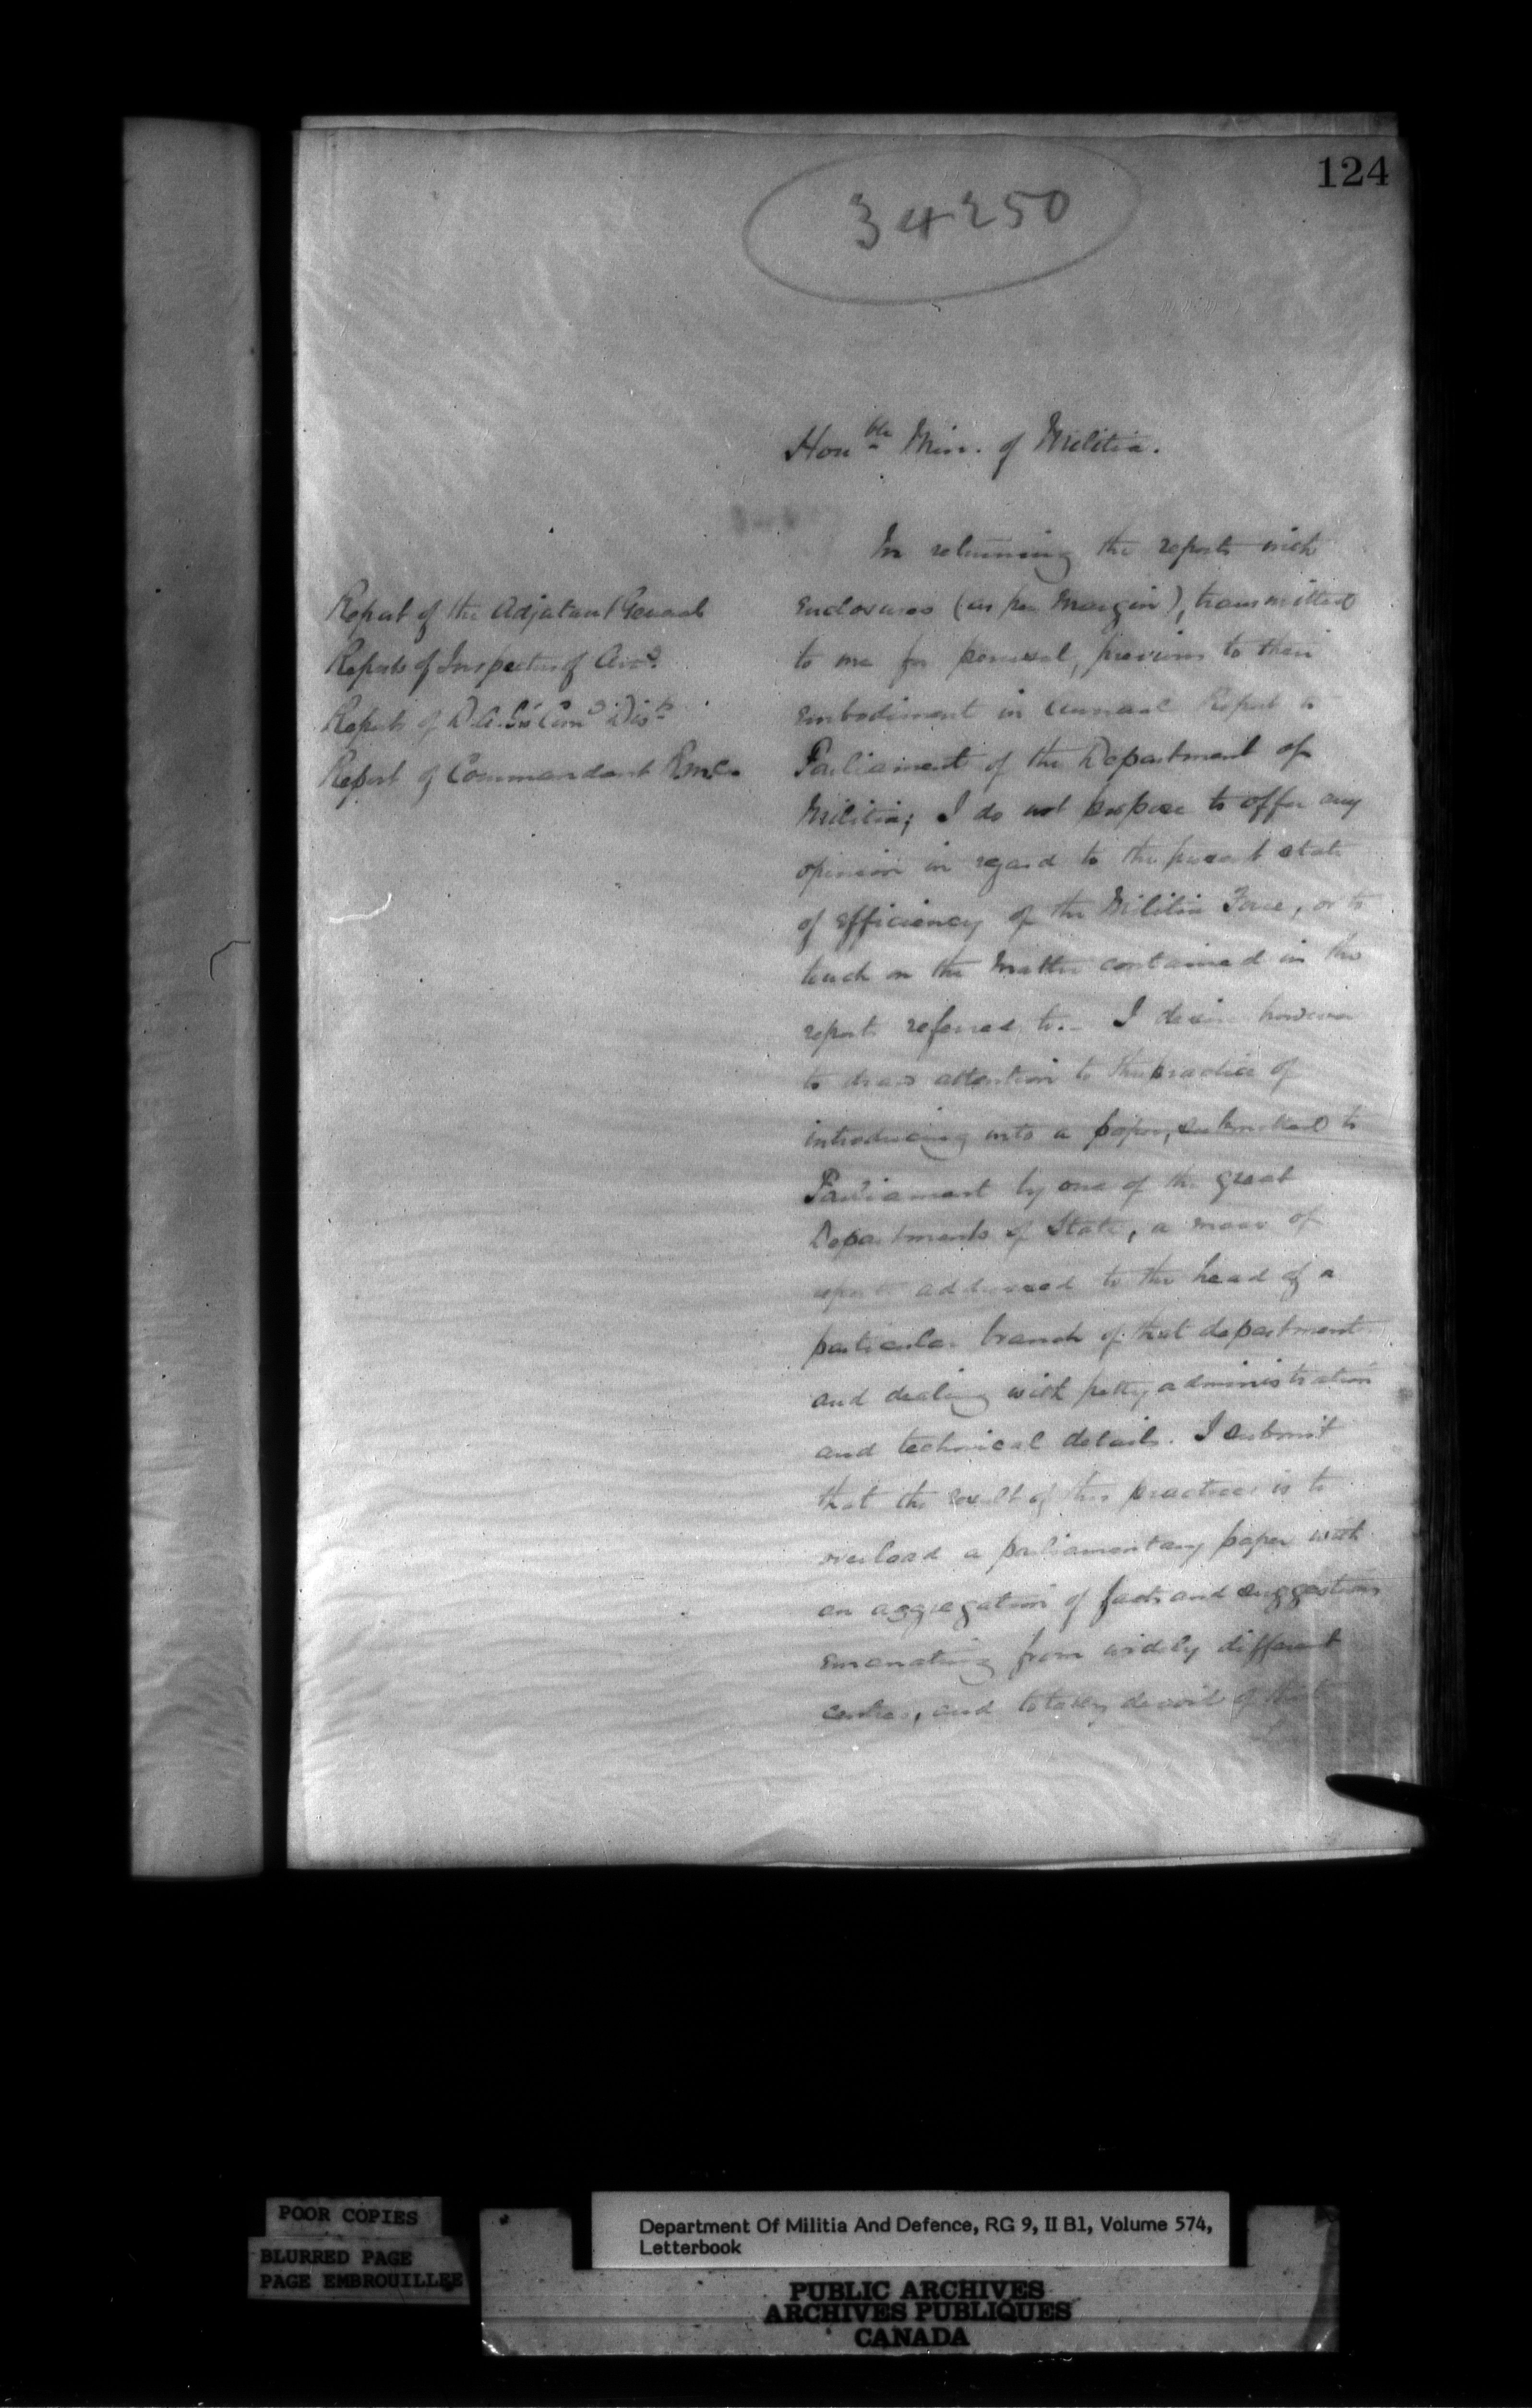 124
34250
Hon^ble Min. of Militia.
In returning the reports with
Report of the Adjutant General
Enclosures (as per Margin), transmitted
Reports of Inspector of
to me for perusal, previous to their
Reports of D.A.G's Com^g Dis^ts
Embodiment in Annual Report to
Report of Commandant R.M.C.
Parliament of the Department of
Militia; I do not propose to offer any
opinion in regard to the present state
of Efficiency of the Militia Force, or to
touch on the Matter contained in the
reports referred to. - I desire however
to draw attention to the practice of
introducing into a paper, submitted to
Parliament by one of the great
Departments of State, a mass of
reports addressed to the head of a
particular branch of that department
and dealing with petty administration
and technical details. I submit
that the result of this practice is to
overload a parliamentary paper with
an aggregation of facts and suggestions
Emanating from widely different
centres, and totally devoid of that
POOR COPIES
BLURRED PAGE
PAGE EMBROUILLEE
Department Of Militia And Defence, RG 9, II B1, Volume 574,
Letterbook
PUBLIC ARCHIVES
ARCHIVES PUBLIQUES
CANADA